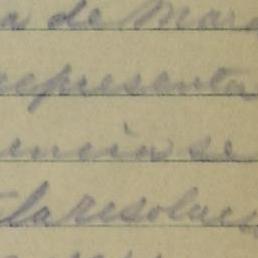 a de Mar
representa
encia se
la resoluci